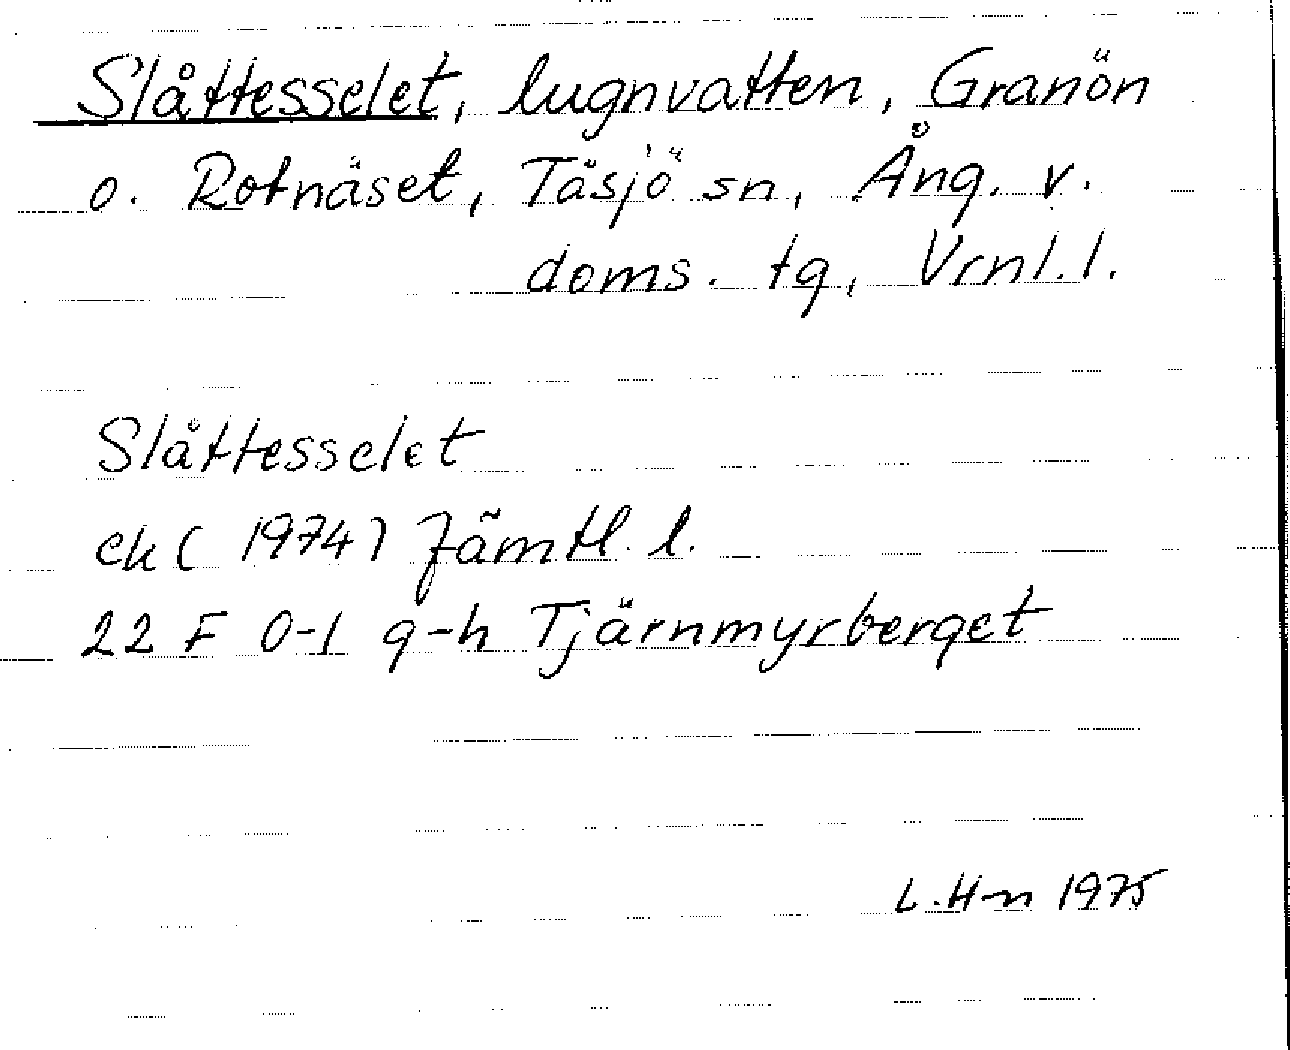 Slåttesselet, lugnvatten, Granön
o. Rotnäset, Täsjö sn, Ång. v.
doms. tg, Vrnl. l.
Slåttesselet
ek (1974) Jämtl. l.
22 F 0-1 g-h Tjärnmyrberget
L. H-n 1975